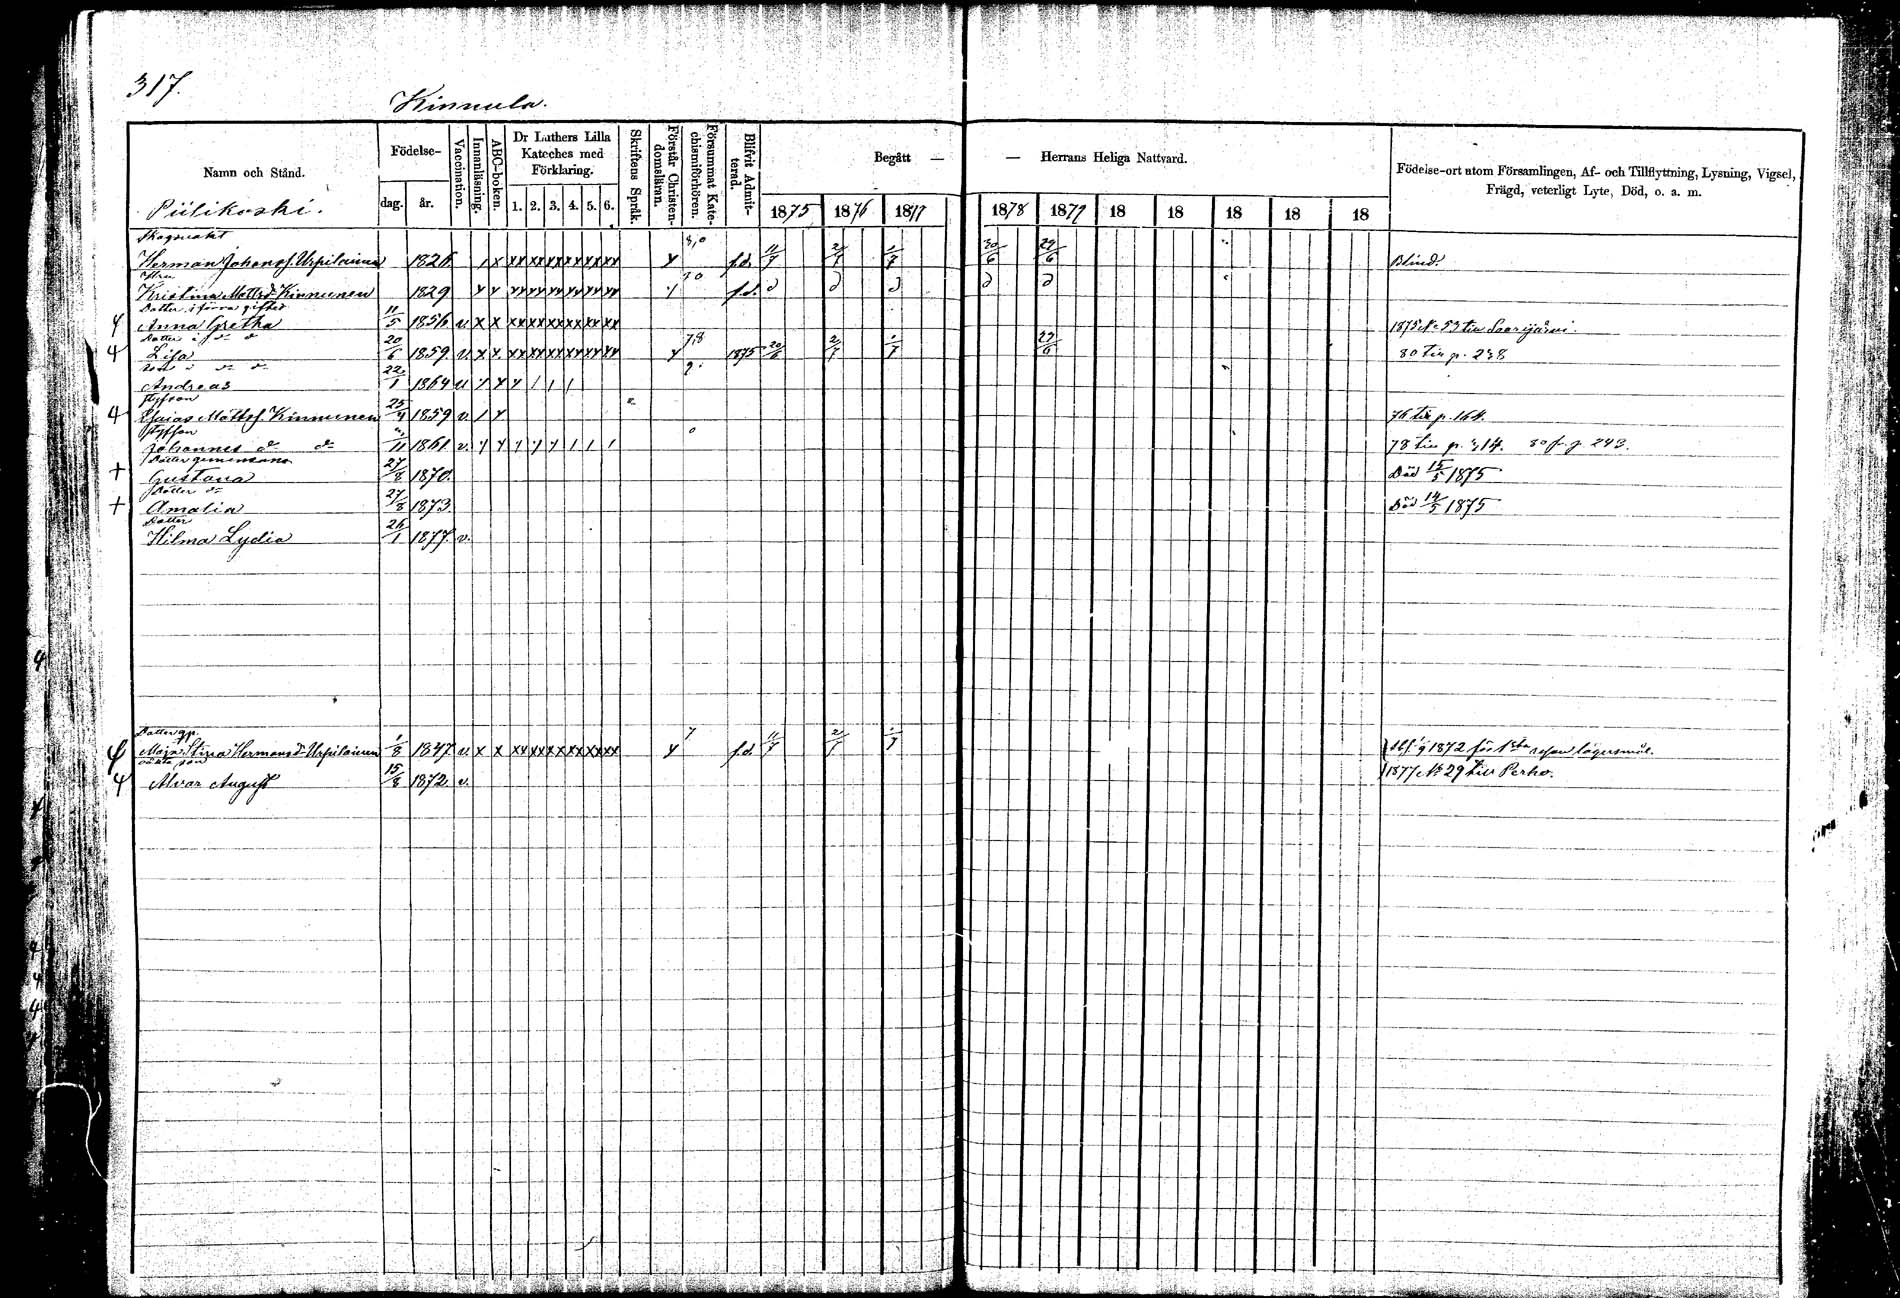 317.
Kinnula.
Namn och Stånd.
Födelse-
dag. år.
Vaccination.
Innanläsning.
ABC-boken.
Dr Luthers Lilla Kateches med Förklaring.
1. 2. 3. 4. 5. 6.
Skriftens Språk.
Förstår Christendomsläran.
Försummat Katechismiförhören.
Blifvit Admitterad.
Begått — — Herrans Heliga Nattvard.
1875 1876 1877 1878 1879 18 18 18 18 18
Födelse-ort utom Församlingen, Af- och Tillflyttning, Lysning, Vigsel, Frägd, veterligt Lyte, Död, o. a. m.
Piilikoski.
Skogvakt
Herman Johans. Urpilainen 1826 f.d. 11/7 2/7 1/7 30/6 29/6 Blind.
Hru
Kristina Mattsd. Kinnunen 1829 f.d.
Dotter i förra giftet
Anna Gretha 11/5 1856 v. 1875 No 53 till Saarijärvi.
Dotter i do do
Lisa 20/6 1859 v. 7,8 1875 20/6 2/7 1/7 29/6 80 till p. 238
Andreas 22/1 1864 v.
styfson
Esaias Mattss. Kinnunen 25/4 1859 v. 76 till p. 164.
styfson
Johannes do do /11 1861 v. 78 till p. 314. 80 fr. p. 243.
Dotter gemensam
Gustava 27/8 1870. Död 15/5 1875
Dotter do
Amalia 27/8 1873. Död 14/5 1875
Dotter
Hilma Lydia 26/1 1877 v.
Dotter
Maja Stina Hermansd. Urpilainen 1/8 1847 v. 7 f.d. 11/7 2/7 1/7 1872 för 1sta resan lägersmål.
oäkta son
Alvar August 15/8 1872. v. 1877 No 29 till Perho.